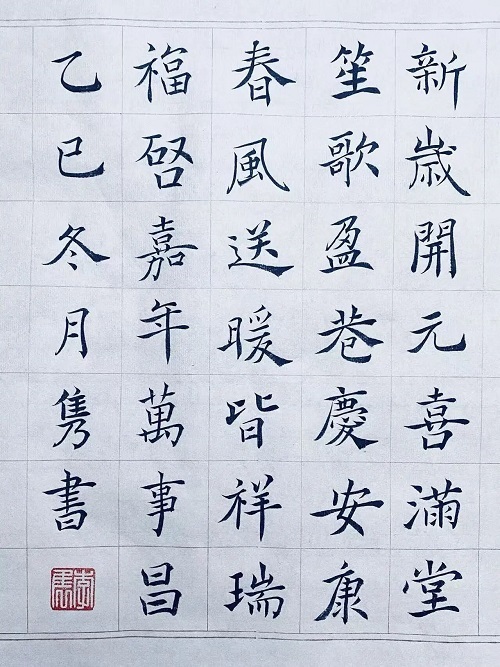 新歲開元喜滿堂
笙歌盈巷慶安康
春風送暖皆祥瑞
福啓嘉年萬事昌
乙巳冬月隽書